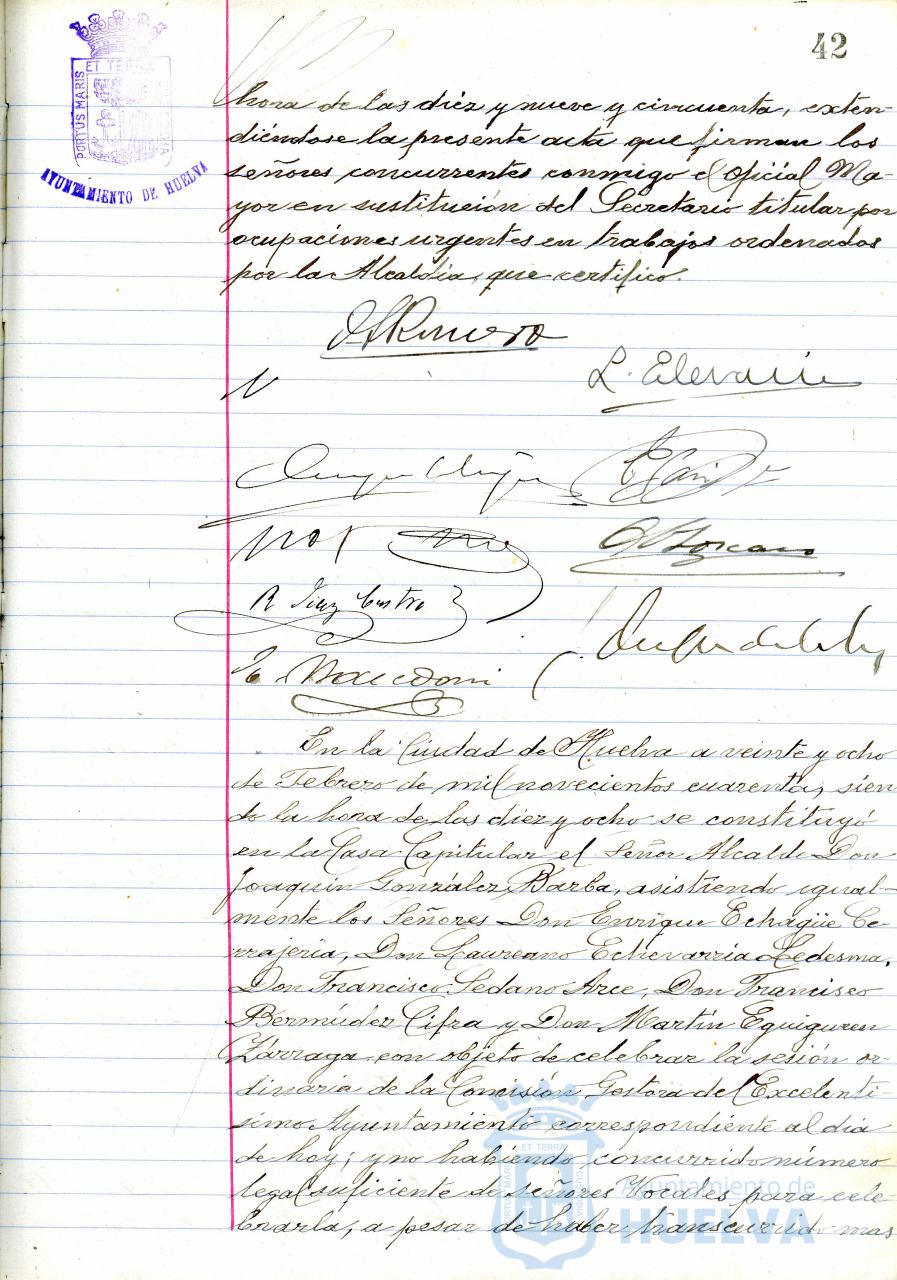 42
PORTUS MARIS
ET TERRÆ
AYUNTAMIENTO DE HUELVA
hora de las diéz y nueve y cincuenta, exten-
diéndose la presente acta que firman los
señores concurrentes conmigo el Oficial Ma-
yor en sustitución del Secretario titular por
ocupaciones urgentes en trabajos ordenados
por la Alcaldía, que certifico.
Romero
L. Echevarría
R. Díaz Castro
En la Ciudad de Huelva a veinte y ocho
de Febrero de mil novecientos cuarenta, sien-
do la hora de las diez y ocho se constituyó
en la Casa Capitular el Señor Alcalde Don
Joaquín González Barba, asistiendo igual-
mente los Señores Don Enrique Echagüe Ce-
rrajería, Don Laureano Echevarría Ledesma,
Don Francisco Sedano Arce, Don Francisco
Bermúdez Cifra y Don Martín Eguiguren
Zárraga con objeto de celebrar la sesión or-
dinaria de la Comisión Gestora del Excelentí-
simo Ayuntamiento correspondiente al día
de hoy; y no habiendo concurrido número
legal suficiente de señores Vocales para cele-
brarla, a pesar de haber transcurrido mas
Ayuntamiento de
HUELVA